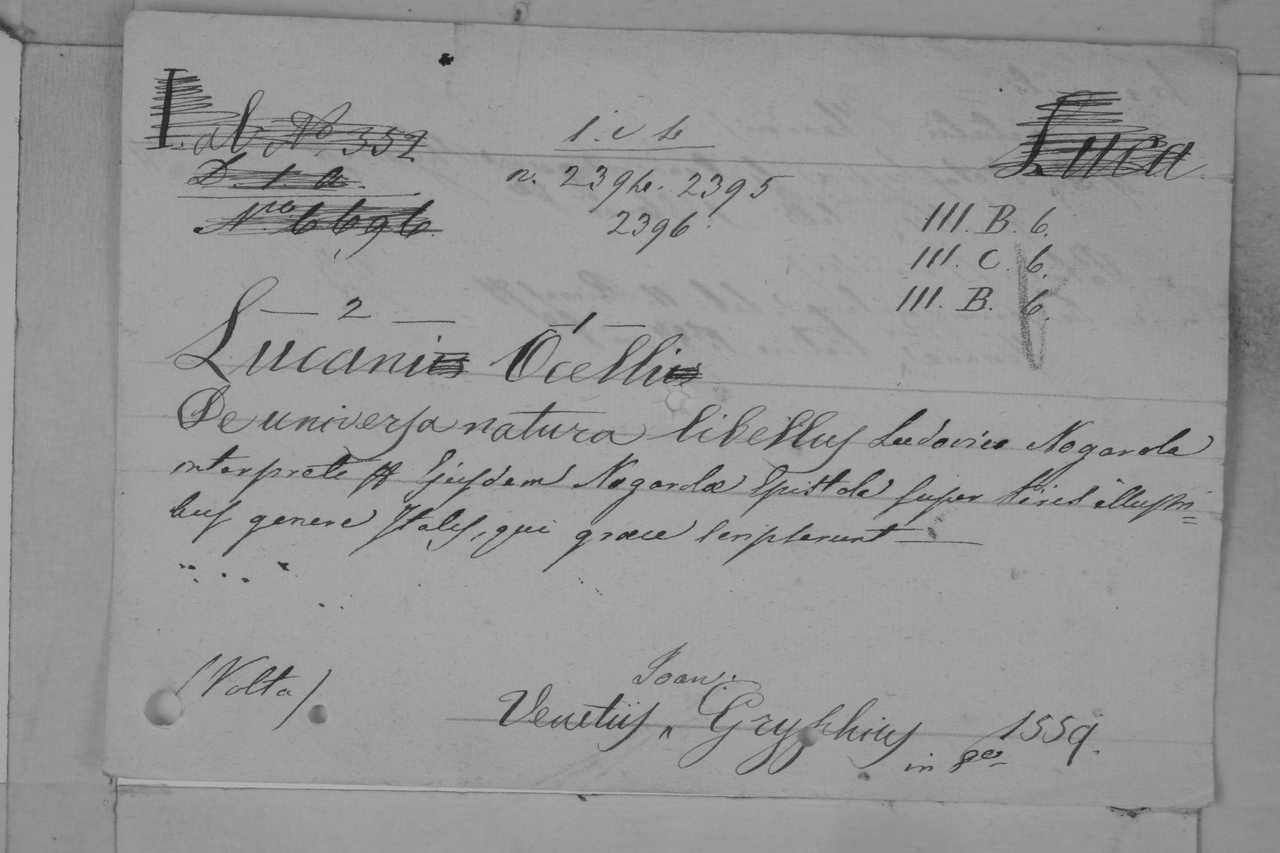 I. ab No 332
1. c. 4
Luca
D. 1. a.
n. 2394. 2395
Nro 6696
2396
III. B. 6.
III. C. 6.
III. B. 6.
2 1
Lucani Ocelli
De universa natura libellus Ludovico Nogarola
interprete Ejusdem Nogarolæ Epistola super Viris illustri=
bus genere Italis, qui græce scripserunt
(Volta)
Joan.
Venetiis, Gryphius in 8vo 1559.